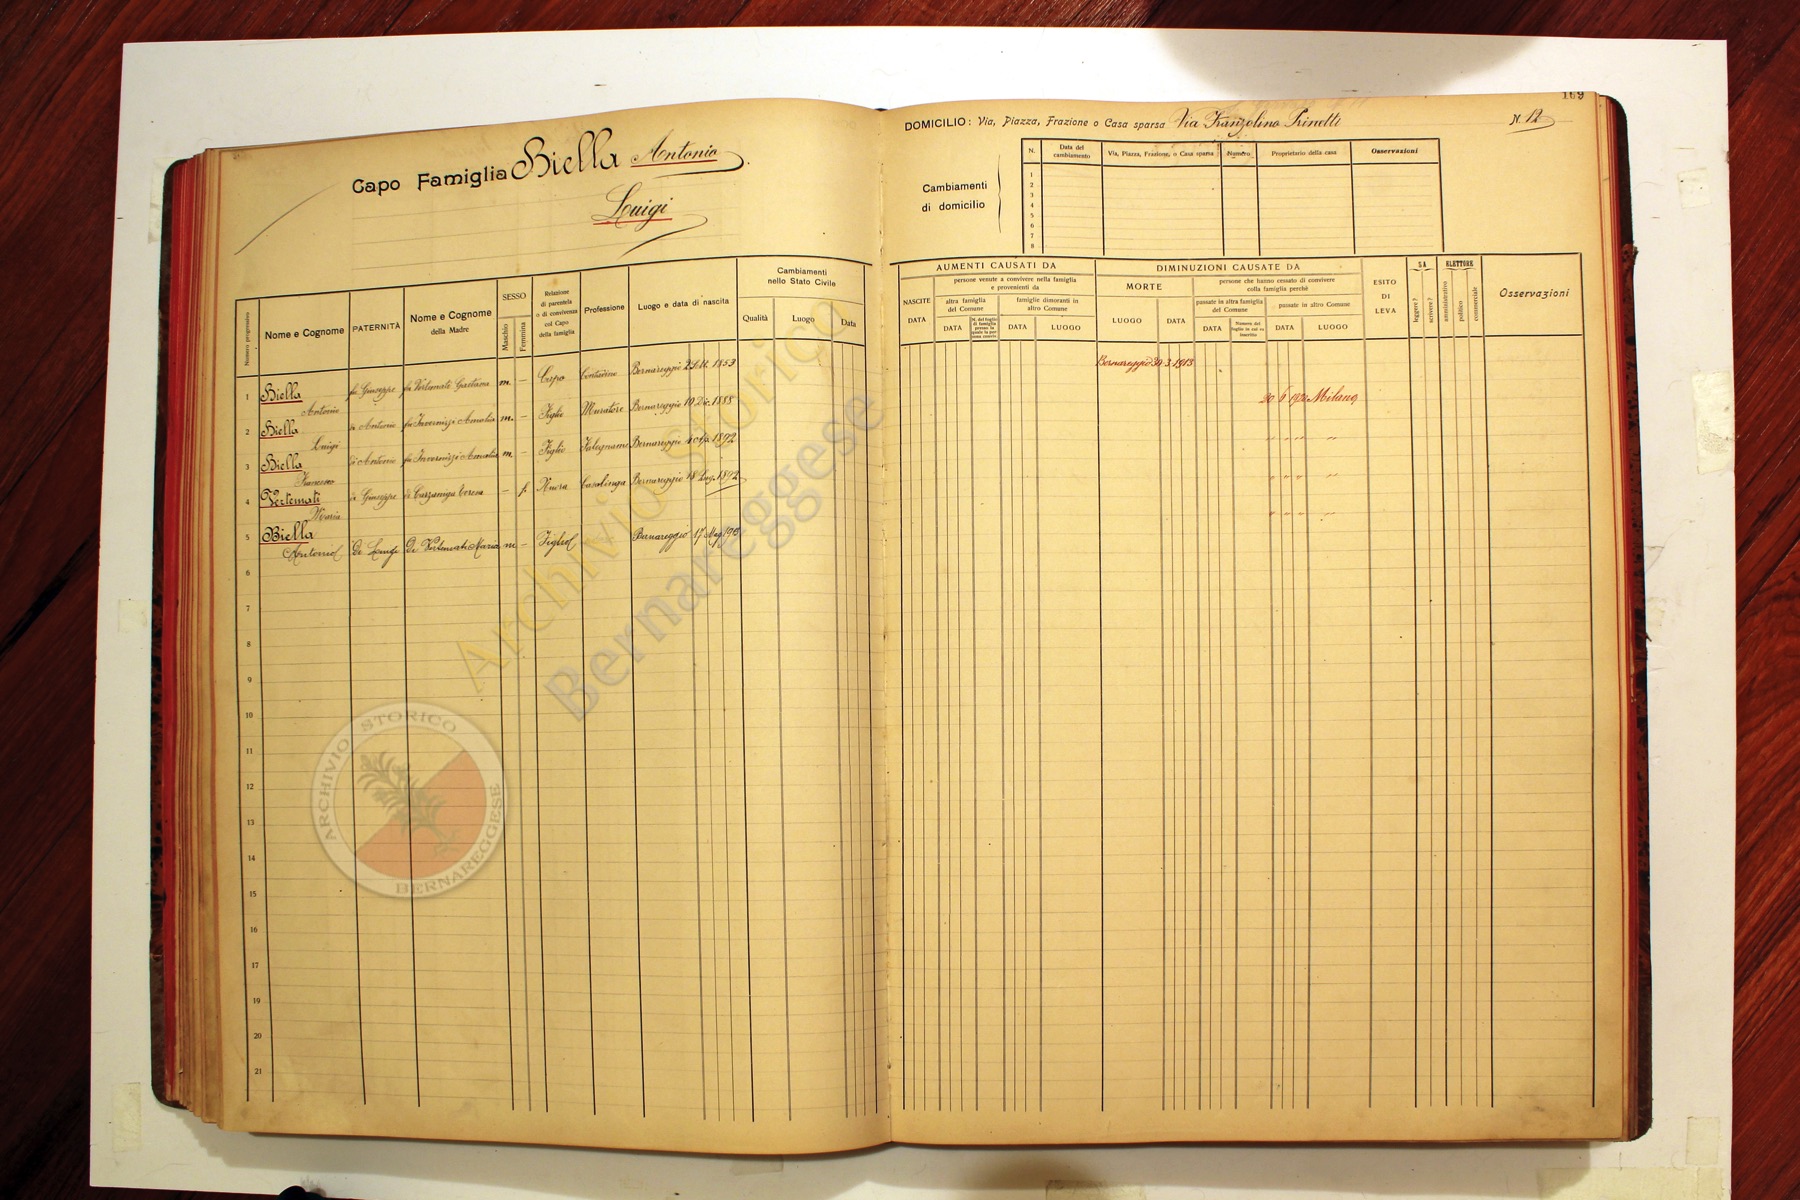 169
Capo Famiglia Biella Antonio
Luigi
DOMICILIO: Via, Piazza, Frazione o Casa sparsa Via Franzolino Prinetti N. 12
Cambiamenti
di domicilio
N. Data del cambiamento Via, Piazza, Frazione, o Casa sparsa Numero Proprietario della casa Osservazioni
1
2
3
4
5
6
7
8
Numero progressivo
Nome e Cognome
PATERNITÀ
Nome e Cognome
della Madre
SESSO
Maschio
Femmina
Relazione
di parentela
o di convivenza
col Capo
della famiglia
Professione
Luogo e data di nascita
Cambiamenti
nello Stato Civile
Qualità Luogo Data
AUMENTI CAUSATI DA
NASCITE
DATA
persone venute a convivere nella famiglia
e provenienti da
altra famiglia
del Comune
DATA
famiglie dimoranti in
altro Comune
DATA LUOGO
DIMINUZIONI CAUSATE DA
MORTE
LUOGO DATA
persone che hanno cessato di convivere
colla famiglia perchè
passate in altra famiglia
del Comune
DATA
Numero del
foglio in cui es
inscritto
passate in altro Comune
DATA LUOGO
ESITO
DI
LEVA
SA
leggere?
scrivere?
ELETTORE
amministrativo
politico
commerciale
Osservazioni
1 Biella Antonio fu Giuseppe fu Vertemati Gaetana m. – Capo Contadino Bernareggio 1853 Bernareggio 3 1913
2 Biella Luigi di Antonio fu Invernizzi Amalia m. – Figlio Muratore Bernareggio 10 Dic. 1888 20 6 Milano
3 Biella Francesco di Antonio fu Invernizzi Amalia m – Figlio Falegname Bernareggio 1892 " " " "
4 Vertemati Maria di Giuseppe di Carzaniga Teresa – f. Nuora Casalinga Bernareggio 18 Lug. 1892 " " " "
5 Biella Antonio Di Luigi Di Vertemati Maria m – Figlio Bernareggio 17 Mag. " " " "
6
7
8
9
10
11
12
13
14
15
16
17
19
20
21
Archivio Storico
Bernareggese
ARCHIVIO STORICO
BERNAREGGESE